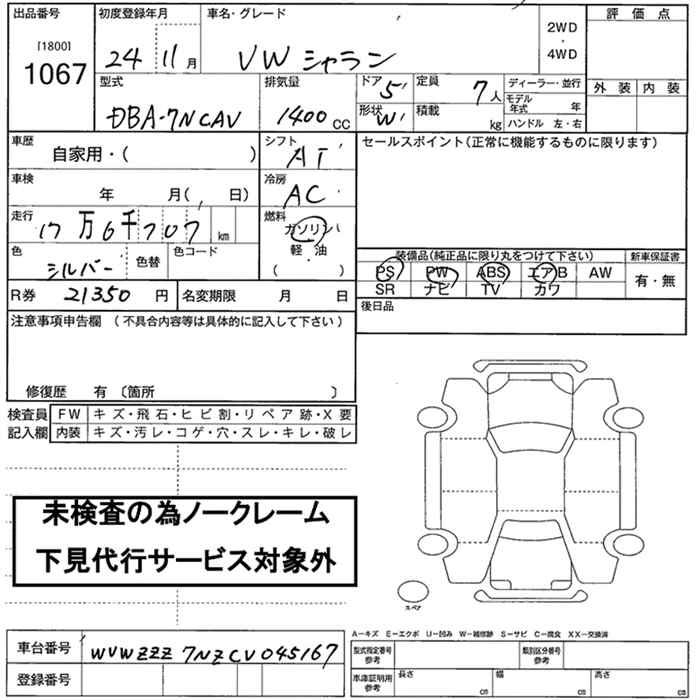 出品番号 初度登録年月 車名・グレード 2WD・4WD 評価点
[1800]
1067 24 11月 VW シャラン
外装 内装
型式 排気量 ドア 5 定員 7人 ディーラー・並行
DBA-7NCAV 1400cc 形状 W 積載 kg モデル年式 年
ハンドル 左・右
車歴 シフト セールスポイント(正常に機能するものに限ります)
自家用・( ) AT
車検 冷房
年 月( 日) AC
走行 燃料
17万6千707km ガソリン
軽・油
( ・ )
色 色替 色コード
シルバー
装備品(純正品に限り丸をつけて下さい) 新車保証書
PS PW ABS エアB AW 有・無
SR ナビ TV カワ
R券 21350円 名変期限 月 日
後日品
注意事項申告欄 (不具合内容等は具体的に記入して下さい)
修復歴 有 〔箇所 〕
検査員 FW キズ・飛石・ヒビ割・リペア跡・X要
記入欄 内装 キズ・汚レ・コゲ・穴・スレ・キレ・破レ
未検査の為ノークレーム
下見代行サービス対象外
スペア
A−キズ E−エクボ U−凹み W−補修跡 S−サビ C−腐食 XX−交換済
車台番号 WVWZZZ7NZCV045167 型式指定番号 参考 類別区分番号 参考
登録番号 車庫証明用 参考 長さ cm 幅 cm 高さ cm